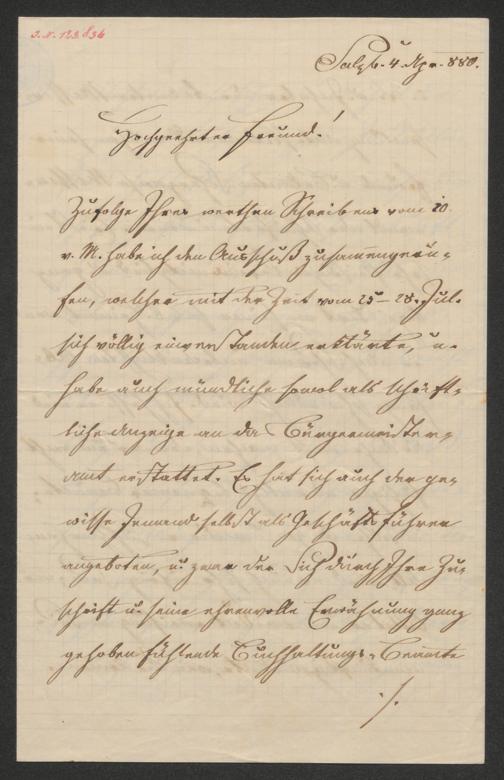 J.N. 123836
Salzb. 4. Apr. 880.
Hochgeehrter Freund!
Zufolge Ihres werthen Schreibens vom 20.
v. M. habe ich den Ausschuß zusammengeru-
fen, welcher mit der Zeit vom 25–28. Jul.
sich völlig einverstanden erklärte, u.
habe auch mündliche sowol als schrift-
liche Anzeige an das Bürgermeister-
amt erstattet. Es hat sich auch der ge-
wisse Jemand selbst als Geschäftsführer
angeboten, u. zwar der sich durch Ihre Zu-
schrift u. seine ehrenvolle Erwähnung ganz
gehoben fühlende Buchhaltungs-Beamte
./.